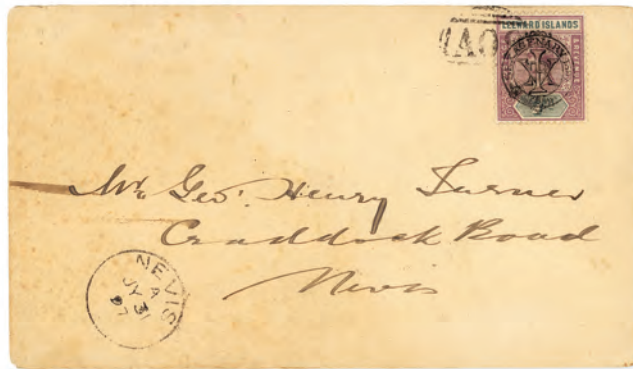 LEEWARD ISLANDS
Mr. Geo. Henry Turner
Craddock Road
Nevis
NEVIS
A
JY 31
97